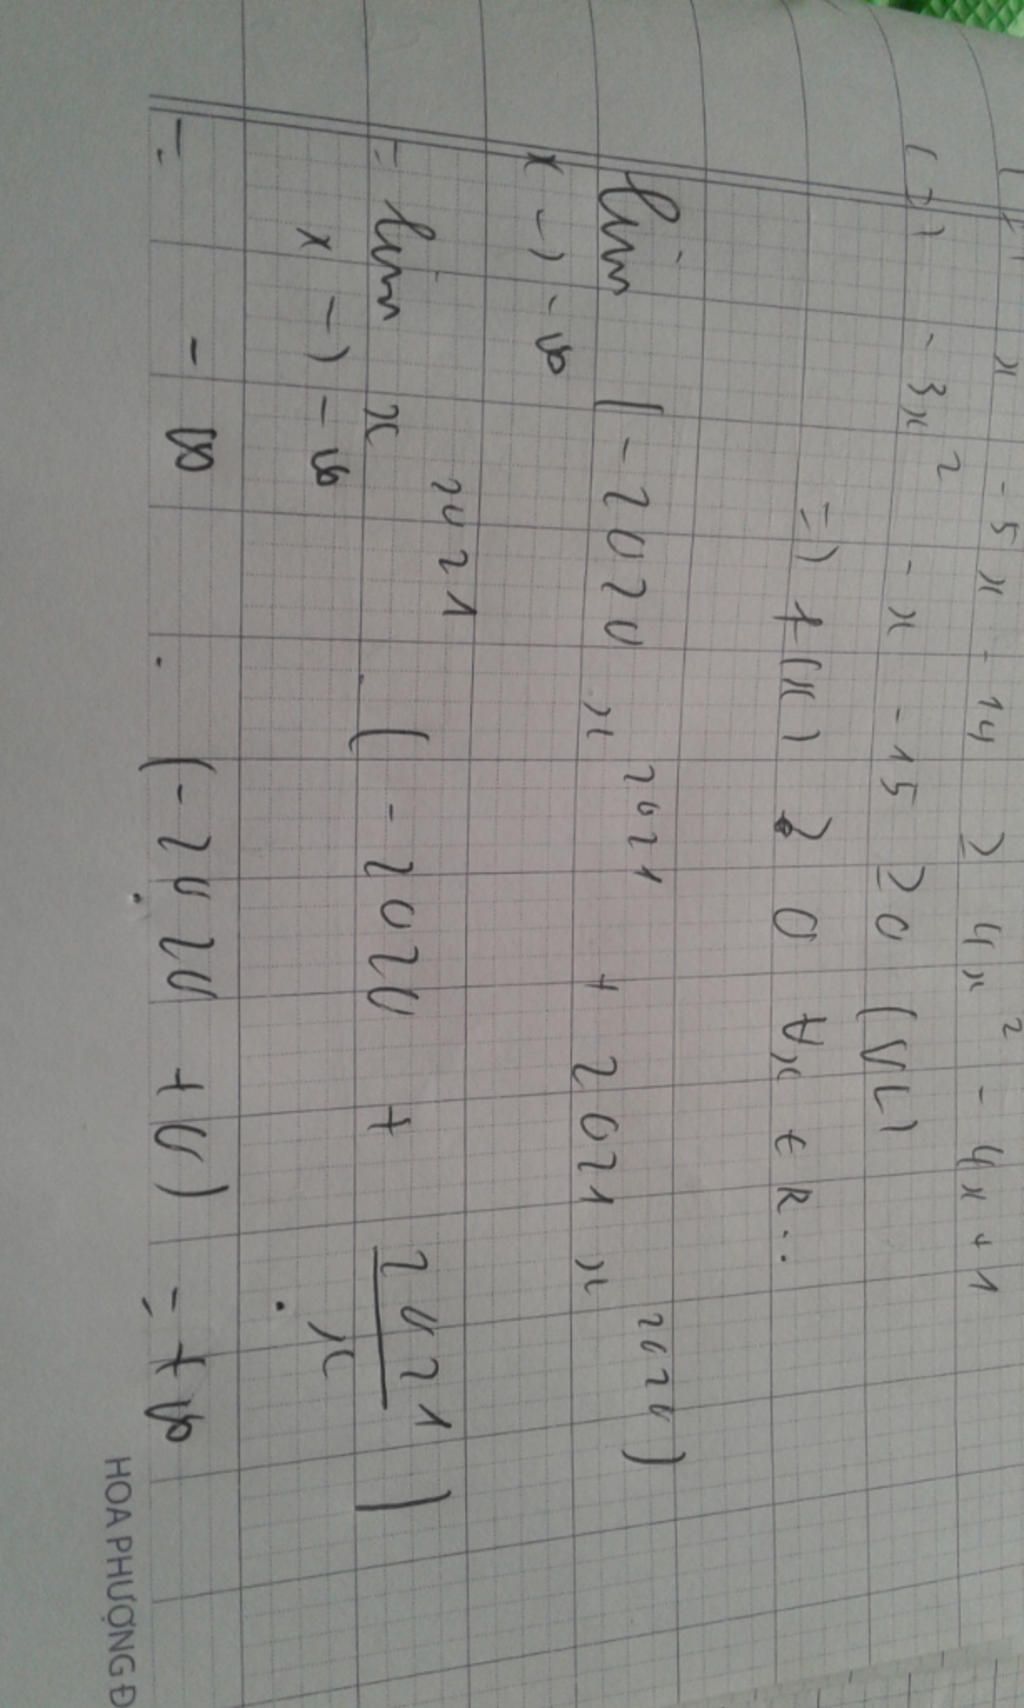 x - 5x - 14 ≥ 4x² - 4x + 1
(=) -3x² - x - 15 ≥ 0 (VL)
=) f(x) ≥ 0 ∀x ∈ R..
lim (-2020 x²⁰²¹ + 2021 x²⁰²⁰)
x -> -∞
= lim x²⁰²¹ . (-2020 + 2021/x)
x -> -∞
= -∞ . (-2020 + 0) = +∞
HOA PHƯỢNG Đ